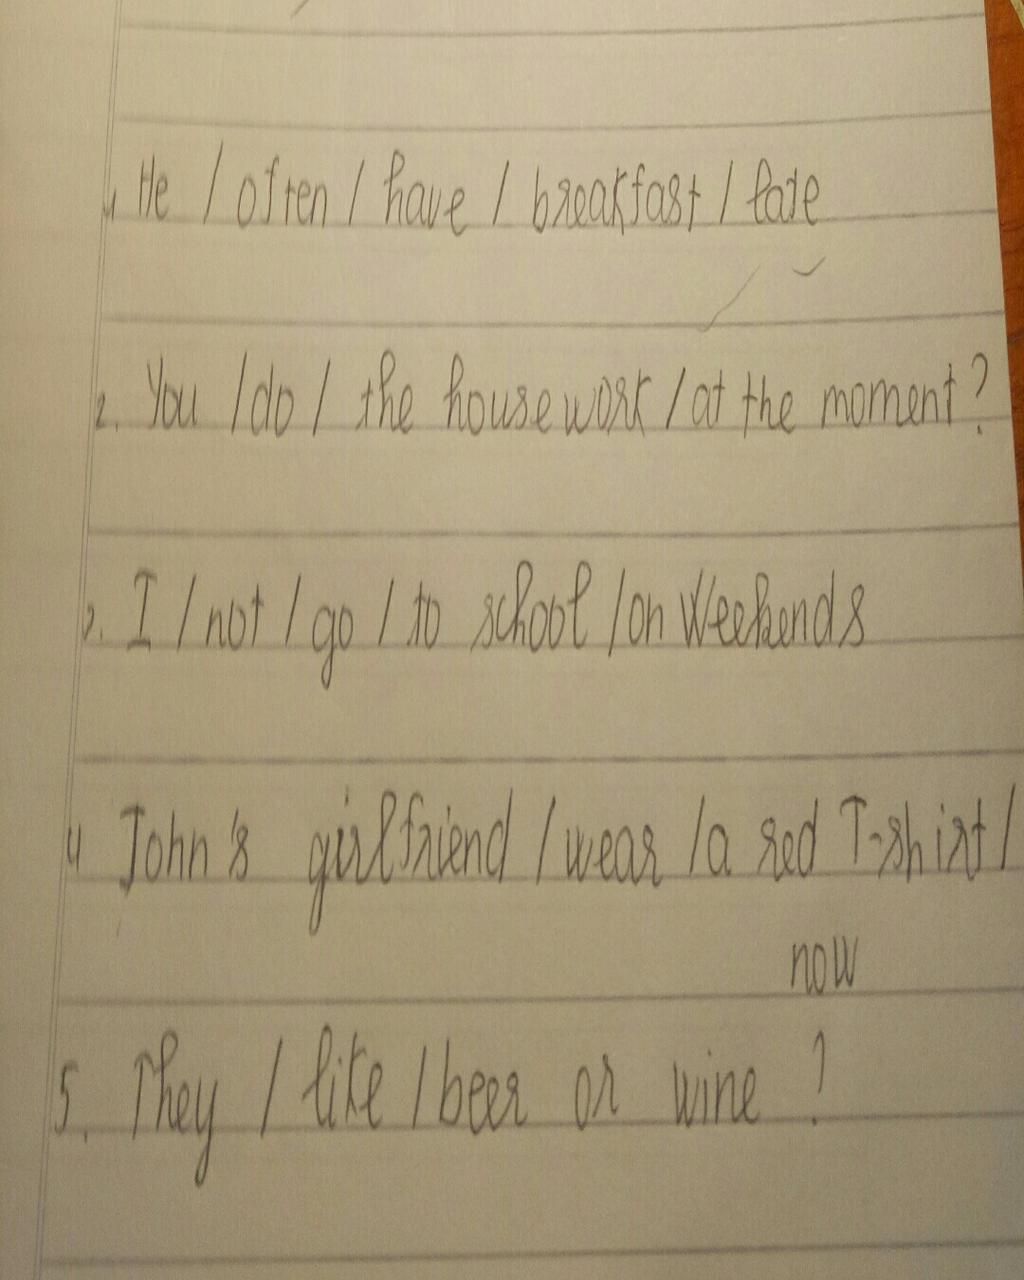 1 He / often / have / breakfast / late
2. You / do / the housework / at the moment?
3. I / not / go / to school / on Weekends
4 John's girlfriend / wear / a red T-shirt /
now
5. They / like / beer or wine ?